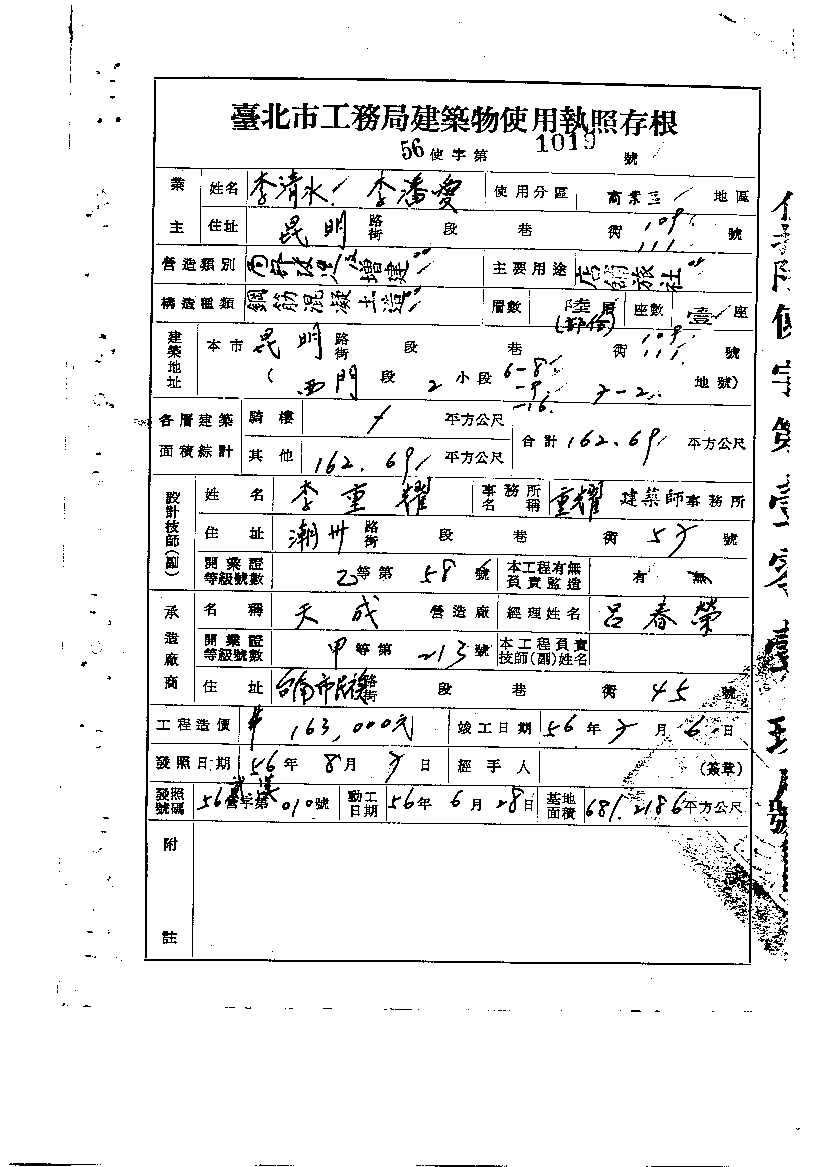 臺北市工務局建築物使用執照存根
56使字第 1019 號
業主 姓名 李清水 李潘愛 使用分區 商業三 地區
住址 昆明 路街 段 巷 衖 109 111 號
營造類別 增建 主要用途 店鋪旅社
構造種類 鋼筋混凝土造 層數 陸層(部份) 座數 壹座
建築地址 本市 昆明 路街 段 巷 衖 109 111 號
(西門 段 2 小段 6-8 -9 -16 7-2 地號)
各層建築面積綜計 騎樓 平方公尺 合計 162.69 平方公尺
其他 162.69 平方公尺
設計技師(副) 姓名 李重耀 事務所名稱 重耀 建築師事務所
住址 潮州 路街 段 巷 衖 57 號
開業證等級號數 乙等第 586 號 本工程有無負責監造 有 無
承造廠商 名稱 天成 營造廠 經理姓名 呂春榮
開業證等級號數 甲等第 213 號 本工程負責技師(副)姓名
住址 台南市民權 路街 段 巷 衖 45 號
工程造價 163,000元 竣工日期 56年7月6日
發照日期 56年8月7日 經手人 (簽章)
發照號碼 56營字第010號 動工日期 56年6月28日 基地面積 681.2186平方公尺
附註
使字第壹零壹玖號